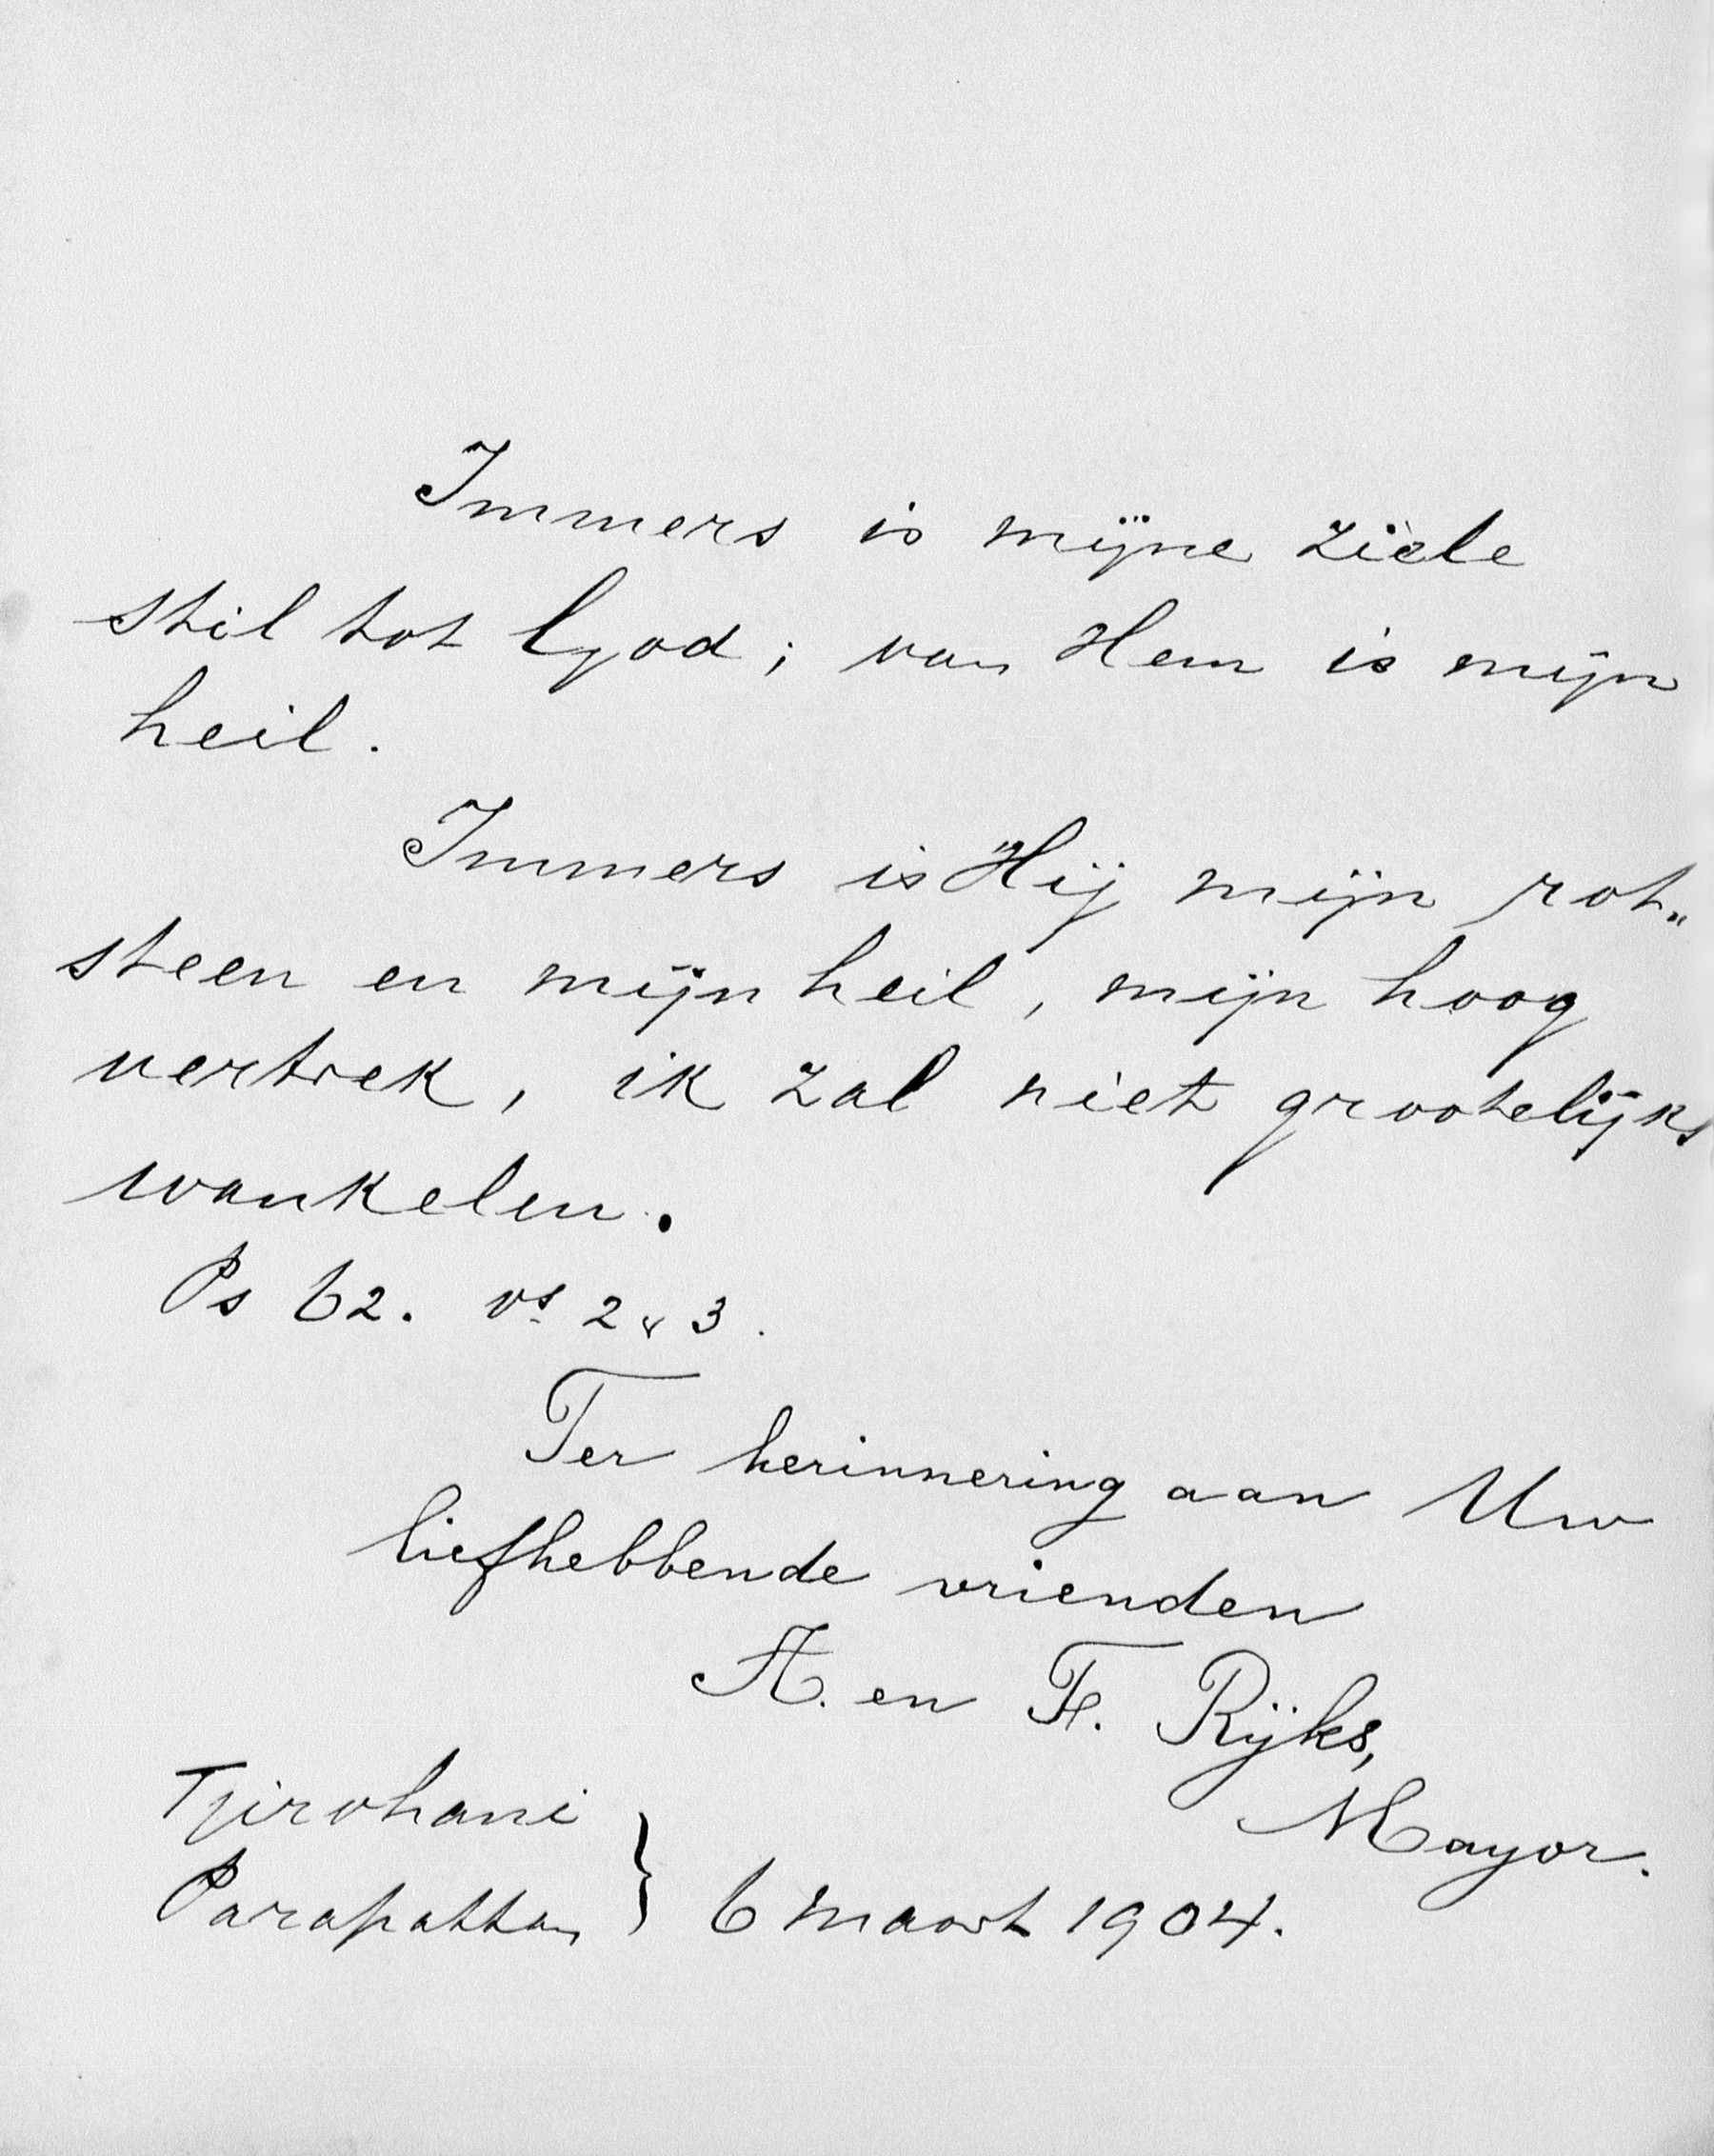 Immers is mijne ziele
stil tot God; van Hem is mijn
heil.
Immers is Hij mijn rot„
steen en mijn heil, mijn hoog
vertrek, ik zal niet grootelijks
wankelen.
Ps 62. vs 2 & 3.
Ter herinnering aan Uw
liefhebbende vrienden
A. en F. Rijks,
Mayor.
Tjirohani
Parapattan } 6 maart 1904.